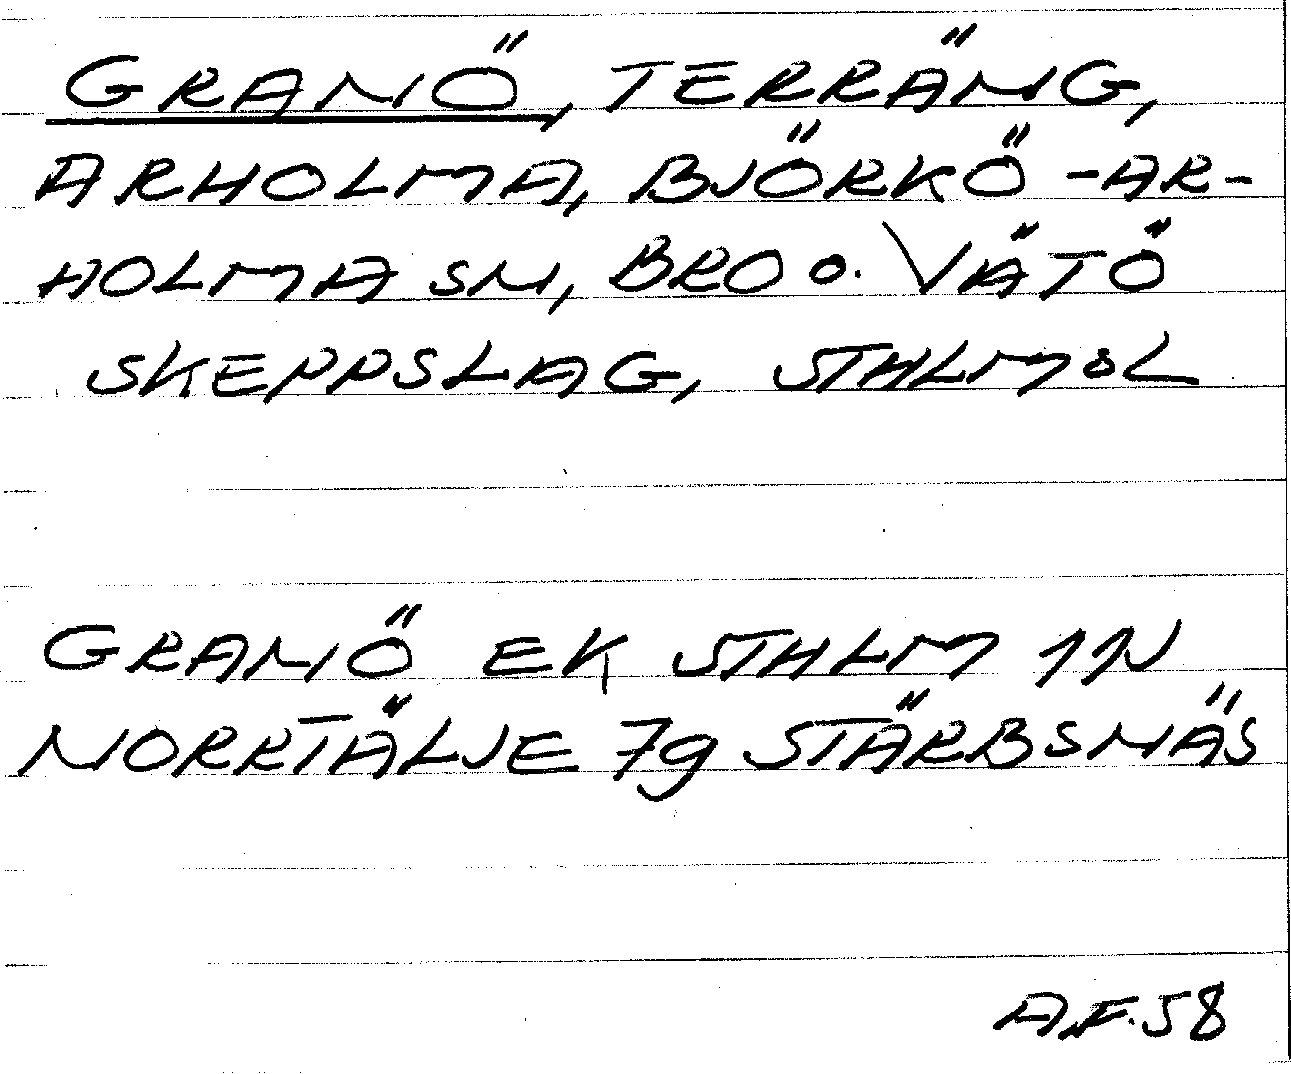 GRANÖ, TERRÄNG,
ARHOLMA, BJÖRKÖ-AR-
HOLMA SN, BRO O. VÄTÖ
SKEPPSLAG, STHLMSL
GRANÖ EK STHLM 11N
NORRTÄLJE 7g STÄRBSNÄS
A.F. 58